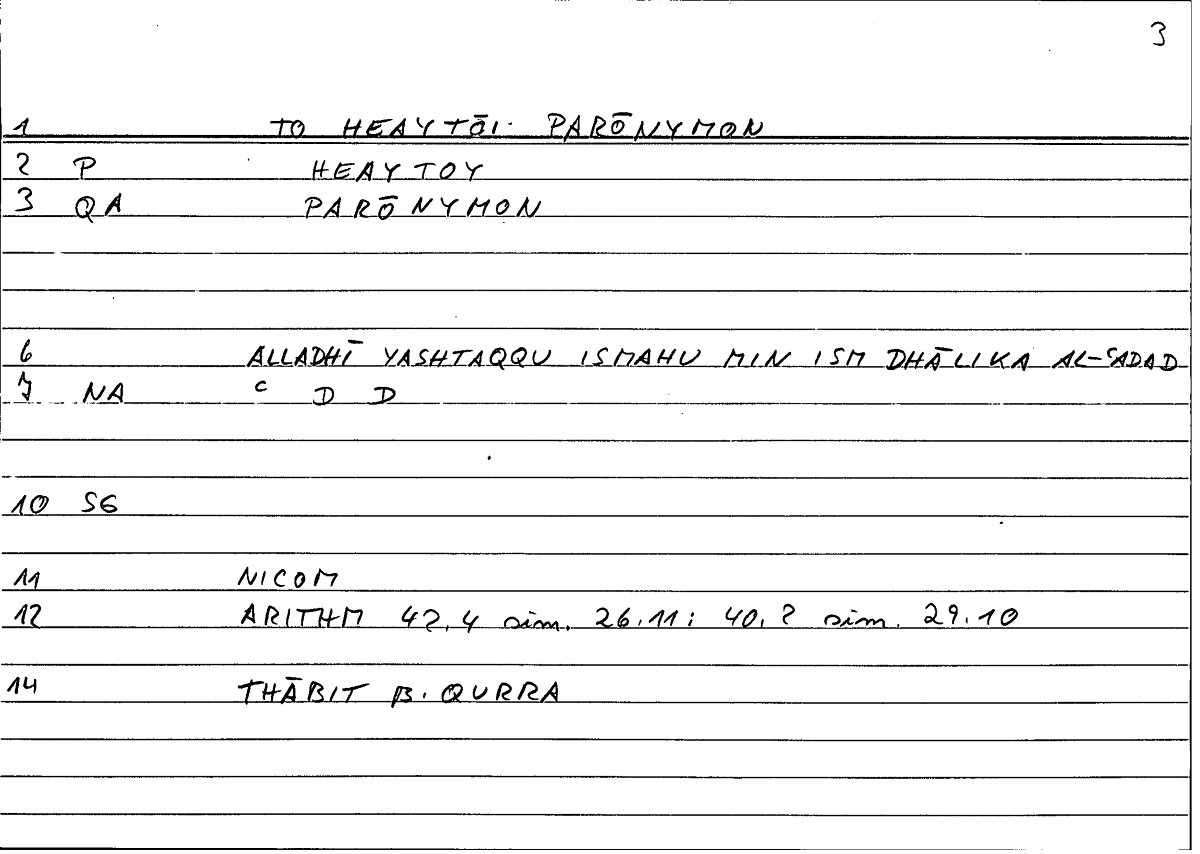 3
1 TO HEAYTŌI PARŌNYMON
2 P HEAYTOY
3 QA PARŌNYMON
6 ALLADHĪ YASHTAQQU ISMAHU MIN ISM DHĀLIKA AL-ʿADAD
7 NA ʿ D D
10 SG
11 NICOM
12 ARITHM 42.4 sim. 26.11; 40.2 sim. 29.10
14 THĀBIT B. QURRA